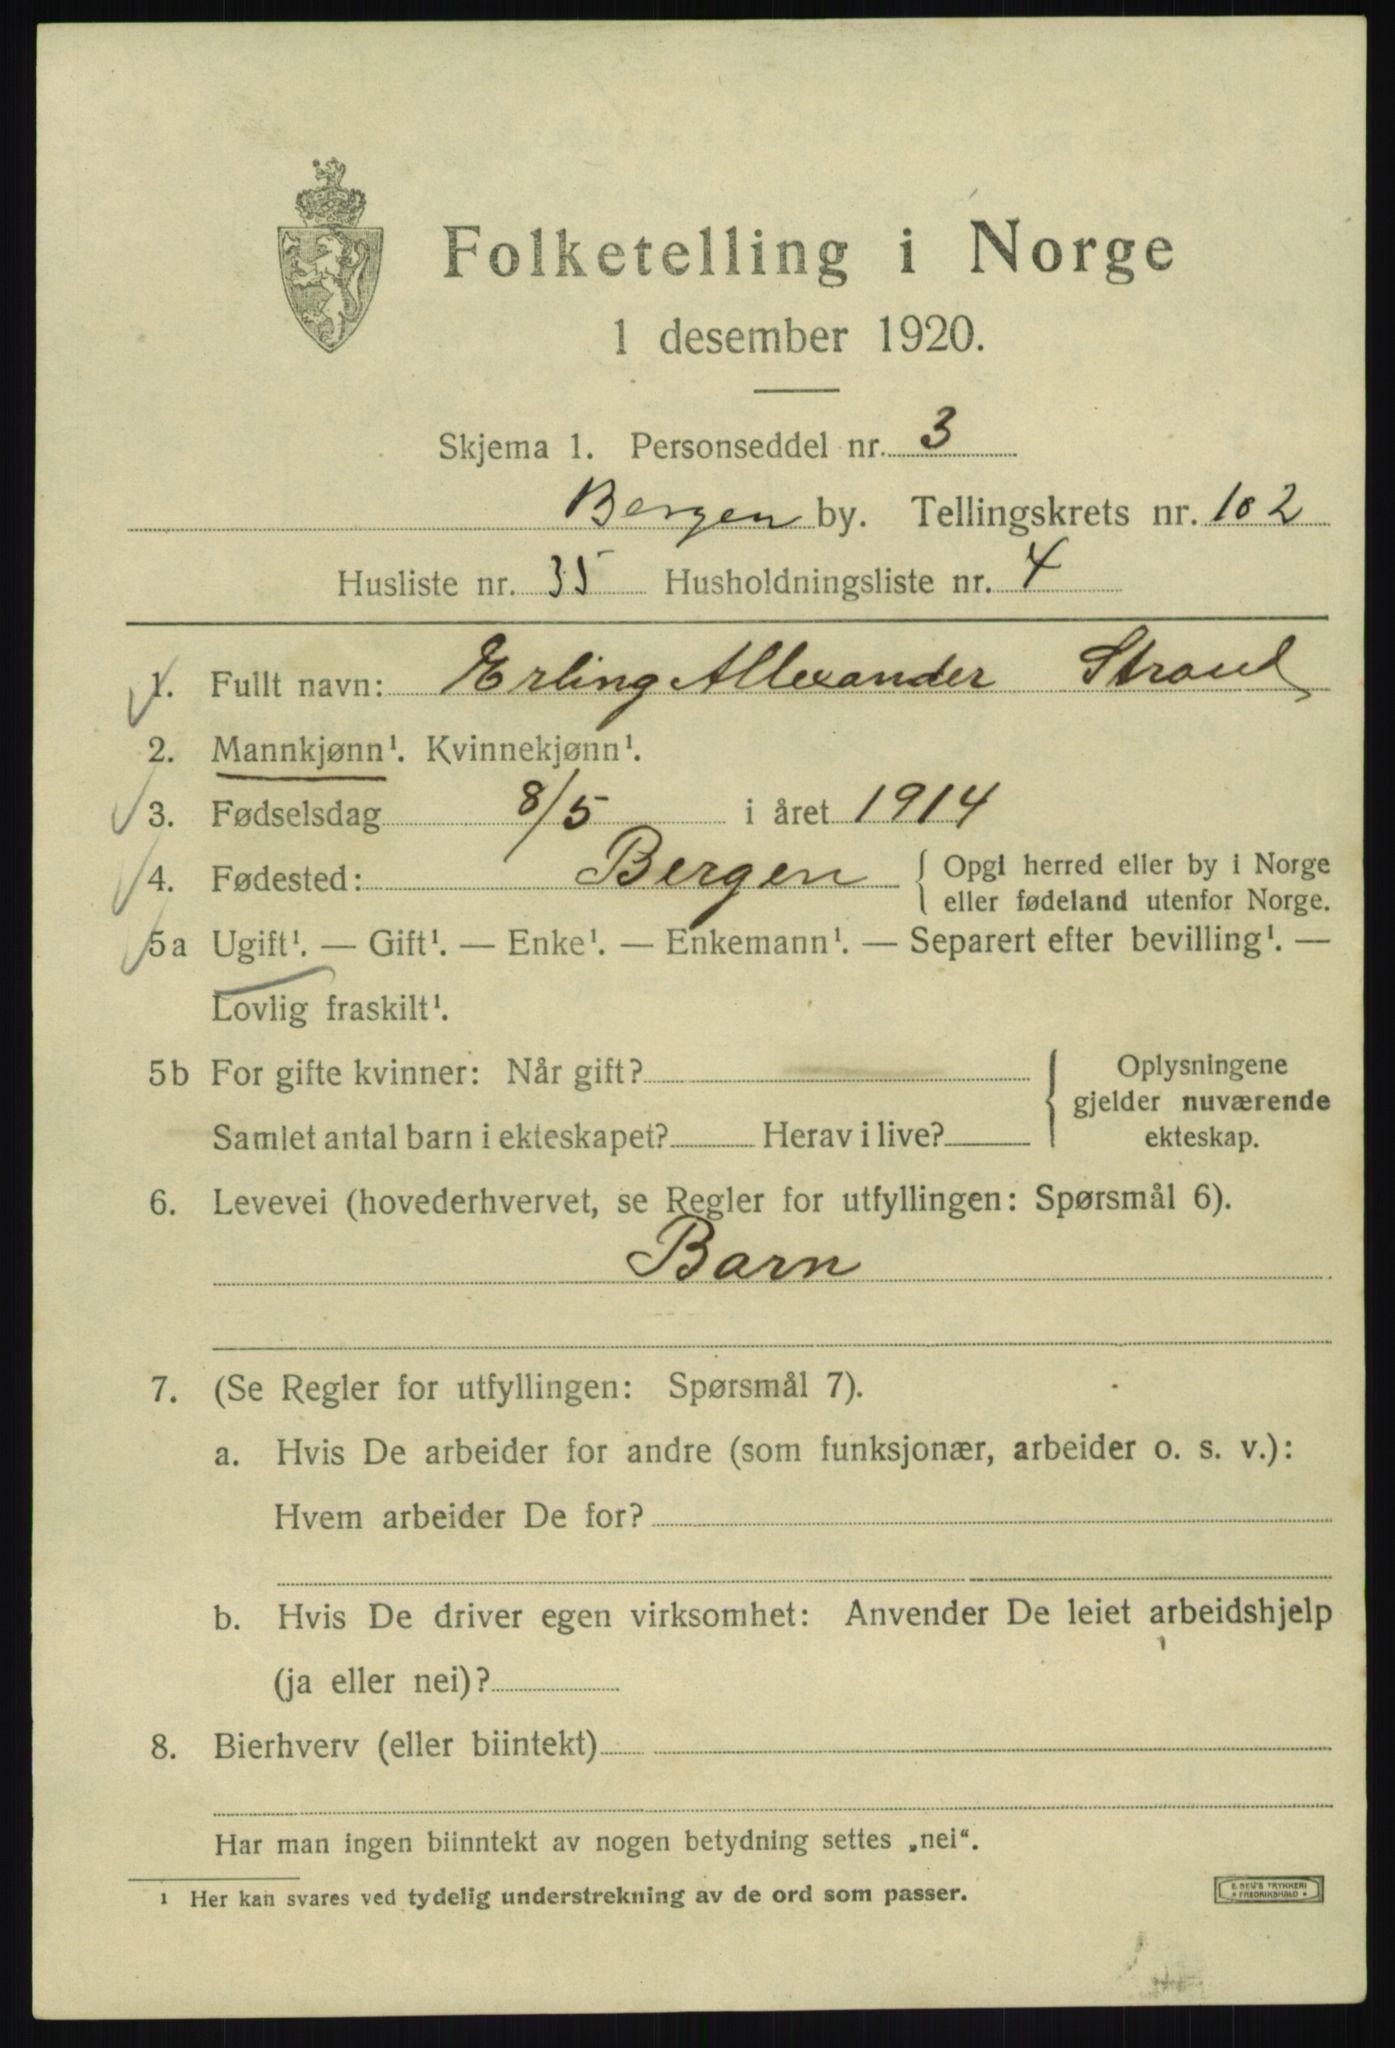 Folketelling i Norge
1 desember 1920.
Skjema 1. Personseddel nr. 3
Bergen by. Tellingskrets nr. 102
Husliste nr. 35 Husholdningsliste nr. 4
1. Fullt navn: Erling Allexander Strand
2. Mannkjønn¹. Kvinnekjønn¹.
3. Fødselsdag 8/5 i året 1914
4. Fødested: Bergen { Opgl herred eller by i Norge
eller fødeland utenfor Norge.
5a Ugift¹. — Gift¹. — Enke¹. — Enkemann¹. — Separert efter bevilling¹. —
Lovlig fraskilt¹.
5b For gifte kvinner: Når gift? { Oplysningene
gjelder nuværende
Samlet antal barn i ekteskapet? Herav i live? ekteskap.
6. Levevei (hovederhvervet, se Regler for utfyllingen: Spørsmål 6).
Barn
7. (Se Regler for utfyllingen: Spørsmål 7).
a. Hvis De arbeider for andre (som funksjonær, arbeider o. s. v.):
Hvem arbeider De for?
b. Hvis De driver egen virksomhet: Anvender De leiet arbeidshjelp
(ja eller nei)?
8. Bierhverv (eller biintekt)
Har man ingen biinntekt av nogen betydning settes „nei“.
¹ Her kan svares ved tydelig understrekning av de ord som passer.
E. SEM'S TRYKKERI
• FREDRIKSHALD •